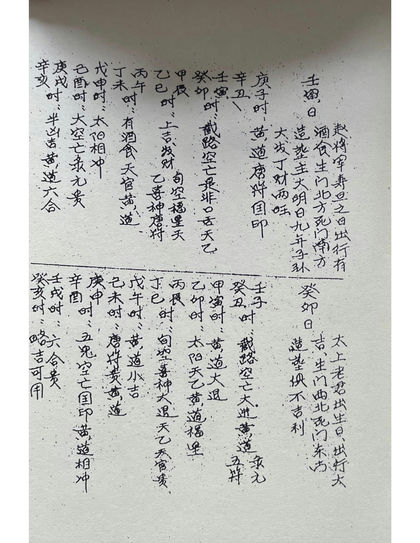 壬寅日
赵将军寿旦之日出行有
酒食生门北方死门南方
造塟主大明日九年子孙
大发丁财两旺
庚子时：黄道唐符国印
辛丑
壬寅时：
癸卯时：截路空亡是非口舌天乙
甲辰
乙巳时：上吉发财
旬空福星天
乙喜神唐符
丙午时：有酒食天官黄道
丁未
戊申时：太阳相冲
己酉时：大空亡彔元贵
庚戌时：
辛亥时：半凶吉黄道六合
癸卯日
太上老君出生日出行大
吉生门西北死门东南
造塟俱不吉利
壬子时
癸丑时：截路空亡大进黄道彔元
五符
甲寅时：黄道大退
乙卯时：太阳天乙黄道福星
丙辰
丁巳时：旬空喜神大退天乙天官贵
戊午时：黄道小吉
己未时：唐符贵黄道
庚申
辛酉时：五鬼空亡国印黄道相冲
壬戌时：六合贵
癸亥时：略吉可用